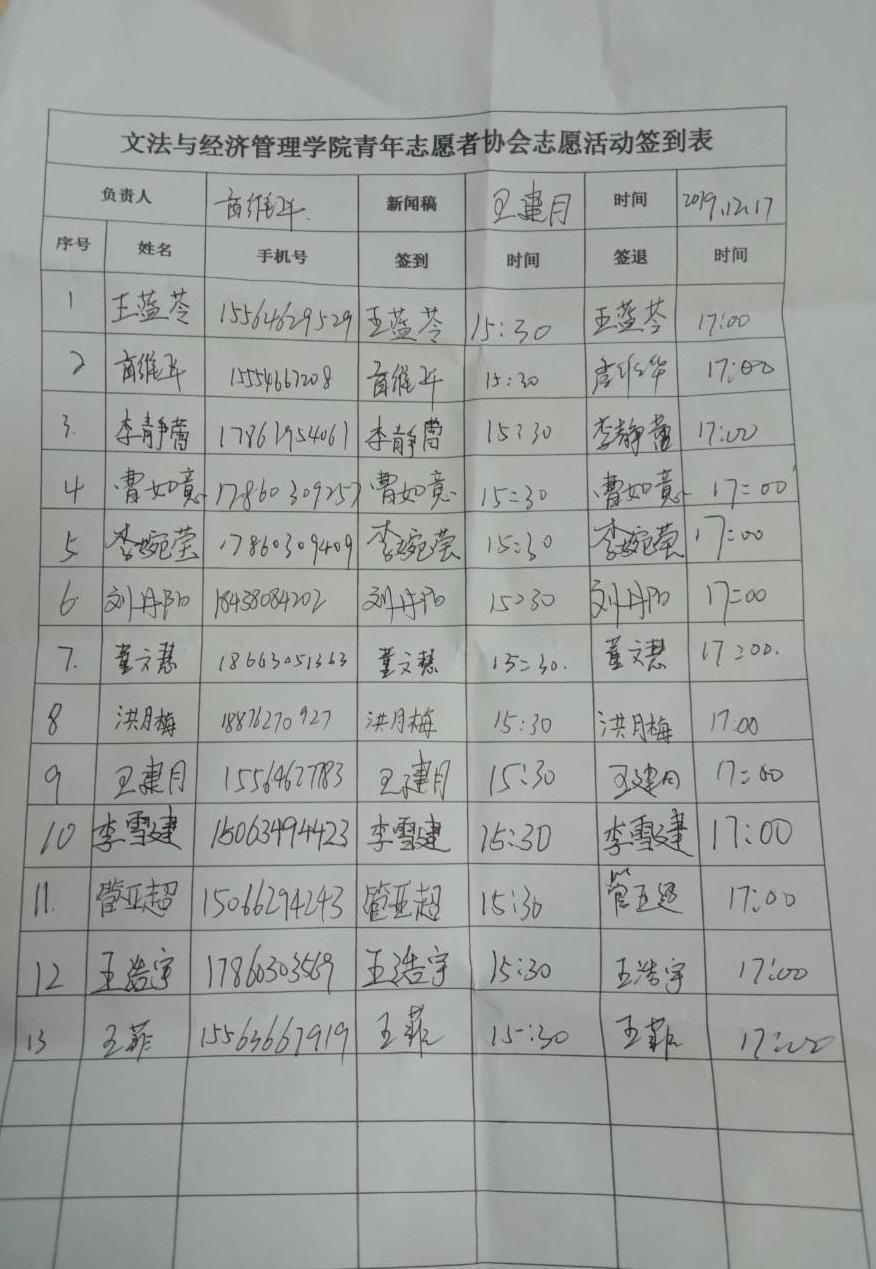 文法与经济管理学院青年志愿者协会志愿活动签到表
负责人 商维华 新闻稿 王建月 时间 2019.12.17
序号 姓名 手机号 签到 时间 签退 时间
1 王蓝苓 15564629529 王蓝苓 15:30 王蓝苓 17:00
2 商维华 15554667208 商维华 15:30 17:00
3. 李静蕾 17861954061 李静蕾 15:30 李静蕾 17:00
4 曹如意 17860309257 曹如意 15:30 曹如意 17:00
5 李婉莹 17860309409 李婉莹 15:30 李婉莹 17:00
6 刘丹阳 18438084202 刘丹阳 15:30 刘丹阳 17:00
7. 董文慧 18663051363 董文慧 15:30. 董文慧 17:00.
8 洪月梅 18876270927 洪月梅 15:30 洪月梅 17:00
9 王建月 15564627783 王建月 15:30 王建月 17:00
10 李雪建 15063494423 李雪建 15:30 李雪建 17:00
11. 管亚超 15066294243 管亚超 15:30 管亚超 17:00
12 王浩宇 17860303569 王浩宇 15:30 王浩宇 17:00
13 王菲 15563667919 王菲 15:30 王菲 17:00